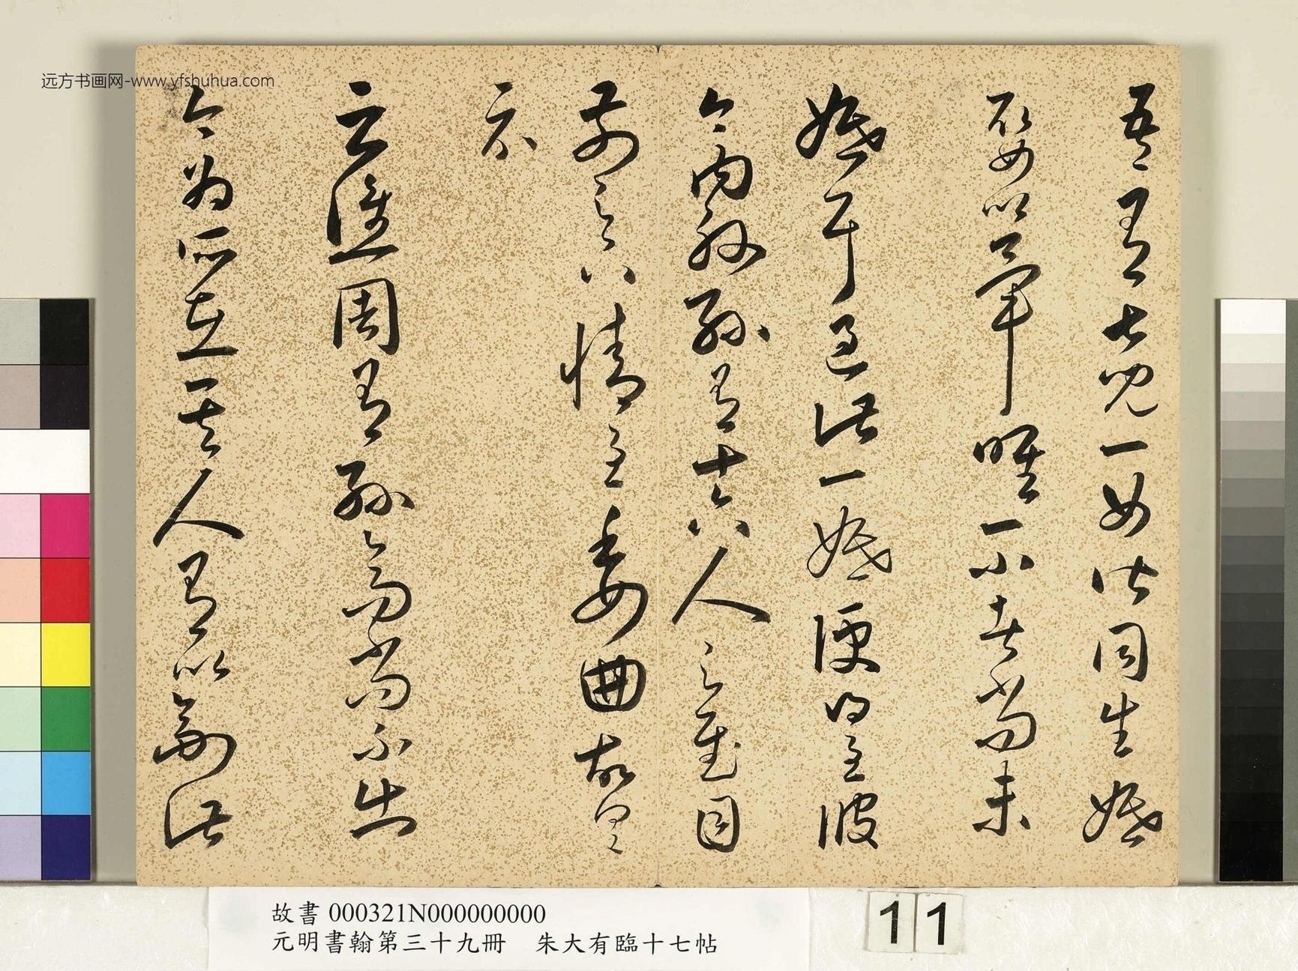 远方书画网-www.yfshuhua.com
吾有七兒一女皆同生婚
娶以畢唯一小者尚未
婚耳過此一婚便得至彼
今內外孫有十六人足慰目
前足下情至委曲故具
示
云譙周有孫高尚不出
今為所在其人有以副此
故書 000321N000000000
元明書翰第三十九冊 朱大有臨十七帖
11